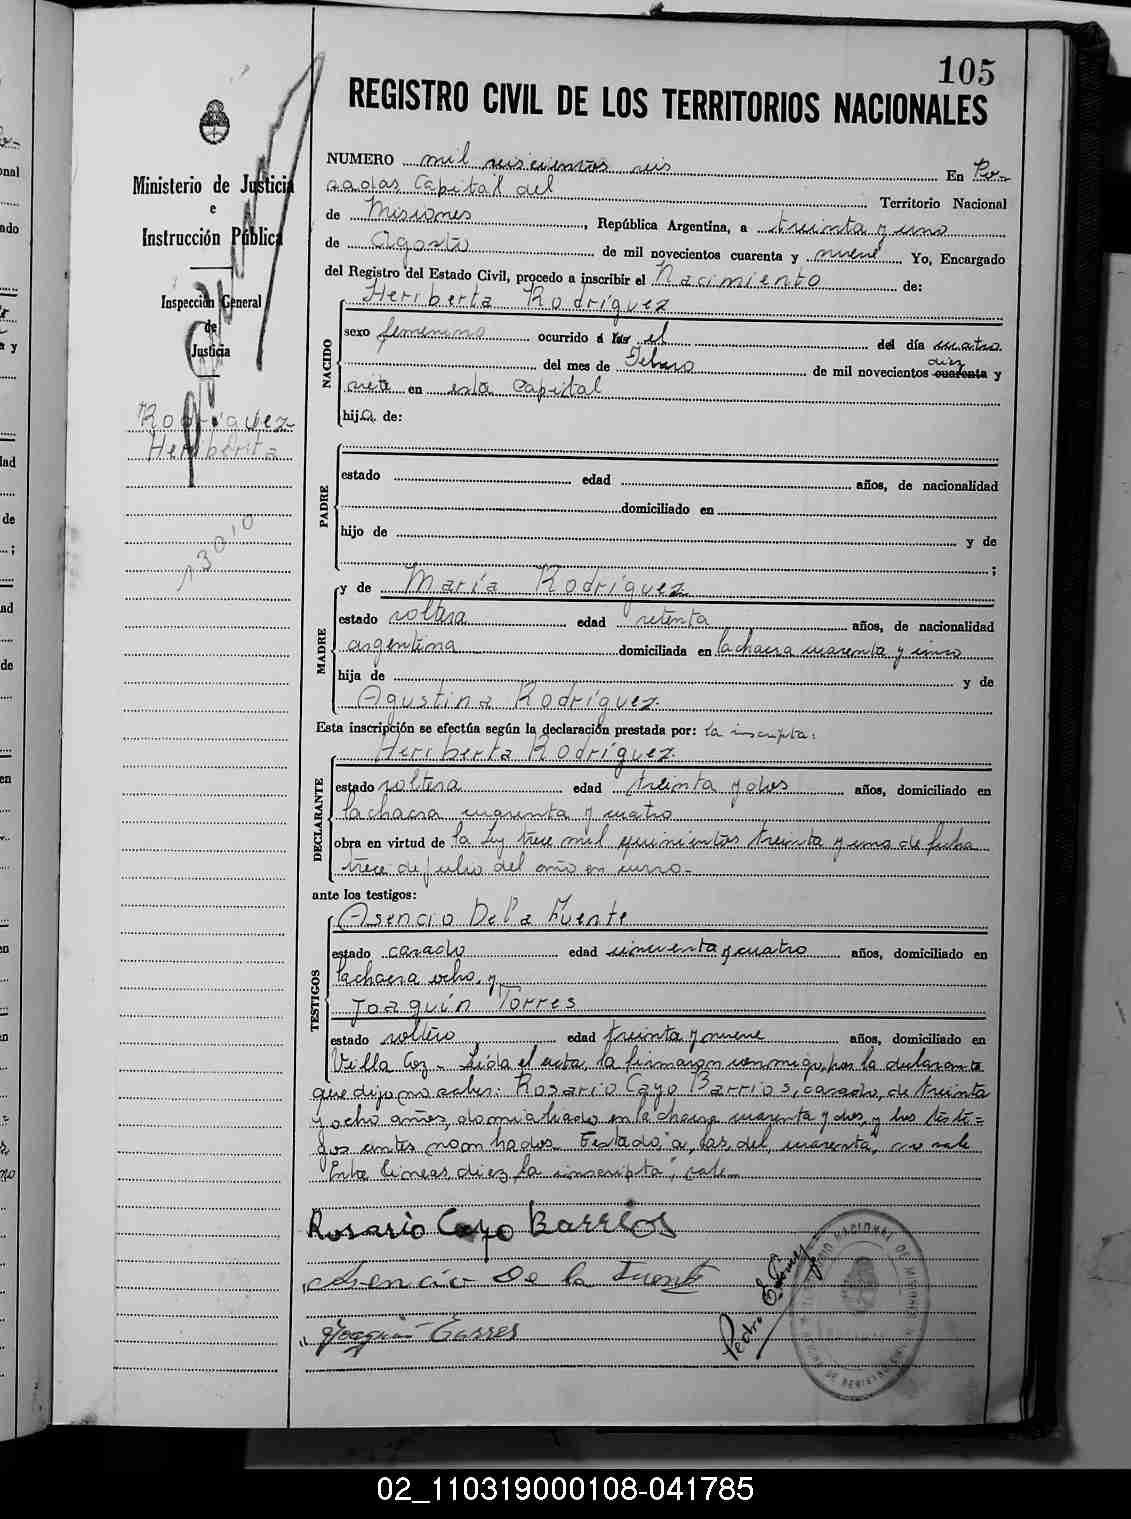 105
REGISTRO CIVIL DE LOS TERRITORIOS NACIONALES
Ministerio de Justicia
e
Instrucción Pública
Inspección General
de
Justicia
Rodríguez
Heriberta
NUMERO mil seiscientos seis En Po-
sadas Capital del Territorio Nacional
de Misiones, República Argentina, a treinta y uno
de Agosto de mil novecientos cuarenta y nueve Yo, Encargado
del Registro del Estado Civil, procedo a inscribir el Nacimiento de:
NACIDO
Heriberta Rodríguez
sexo femenino ocurrido á las el del día cuatro
diez
del mes de Febrero de mil novecientos cuarenta y
siete en esta Capital
hija de:
PADRE
estado edad años, de nacionalidad
domiciliado en
hijo de y de
;
MADRE
y de María Rodríguez
estado soltera edad setenta años, de nacionalidad
argentina domiciliada en la chacra cuarenta y cinco
hija de y de
Agustina Rodríguez.
Esta inscripción se efectúa según la declaración prestada por: la inscripta:
DECLARANTE
Heriberta Rodríguez.
estado soltera edad treinta y dos años, domiciliado en
la chacra cuarenta y cuatro
obra en virtud de la Ley trece mil quinientos treinta y uno de fecha
trece de julio del año en curso.-
ante los testigos:
TESTIGOS
Asencio De la Fuente
estado casado edad cincuenta y cuatro años, domiciliado en
la chacra ocho, y
Joaquín Torres
estado soltero edad treinta y nueve años, domiciliado en
Villa Coz - Leída el acta, la firmaron conmigo, por la declarante
que dijo no saber: Rosario Cayo Barrios, casado, de treinta
y ocho años, domiciliado en la chacra cuarenta y dos, y los testi-
gos antes nombrados. Testado, "a, las, del, cuarenta", no vale
"Entre líneas, diez, la inscripta", vale.-
Rosario Cayo Barrios
Asencio De la Fuente
Joaquin Torres
Pedro
02_110319000108-041785